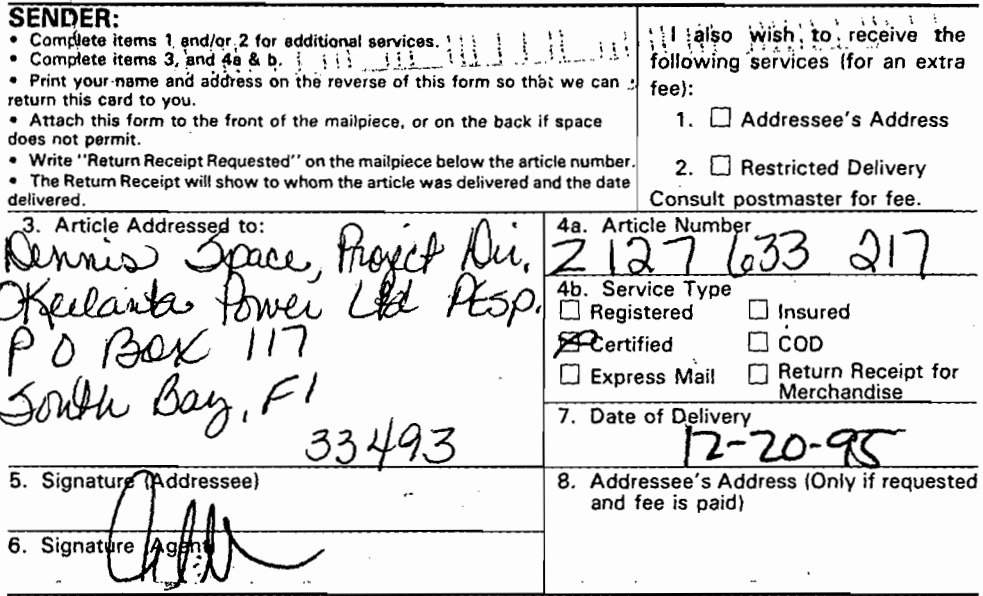 SENDER:
• Complete items 1 and/or 2 for additional services.
• Complete items 3, and 4a & b.
• Print your name and address on the reverse of this form so that we can
return this card to you.
• Attach this form to the front of the mailpiece, or on the back if space
does not permit.
• Write "Return Receipt Requested" on the mailpiece below the article number.
• The Return Receipt will show to whom the article was delivered and the date
delivered.
I also wish to receive the
following services (for an extra
fee):
1. ☐ Addressee's Address
2. ☐ Restricted Delivery
Consult postmaster for fee.
3. Article Addressed to:
Dennis Space, Project Dir.
Okeelanta Power Ltd Ptsp.
P O Box 117
South Bay, Fl
33493
4a. Article Number
Z 127 633 217
4b. Service Type
☐ Registered ☐ Insured
☒ Certified ☐ COD
☐ Express Mail ☐ Return Receipt for
Merchandise
7. Date of Delivery
12-20-95
5. Signature (Addressee)
6. Signature (Agent)
8. Addressee's Address (Only if requested
and fee is paid)